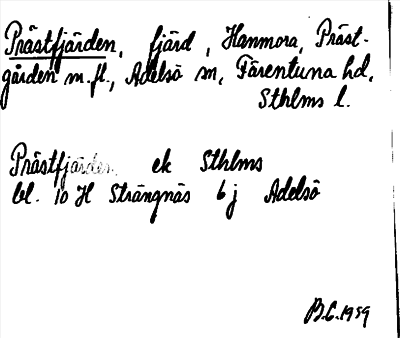 Prästfjärden, fjärd, Hanmora, Präst-
gården m.fl., Adelsö sn, Färentuna hd,
Sthlms l.
Prästfjärden ek Sthlms
bl. 10 H Strängnäs 6 j Adelsö
B.C. 1959